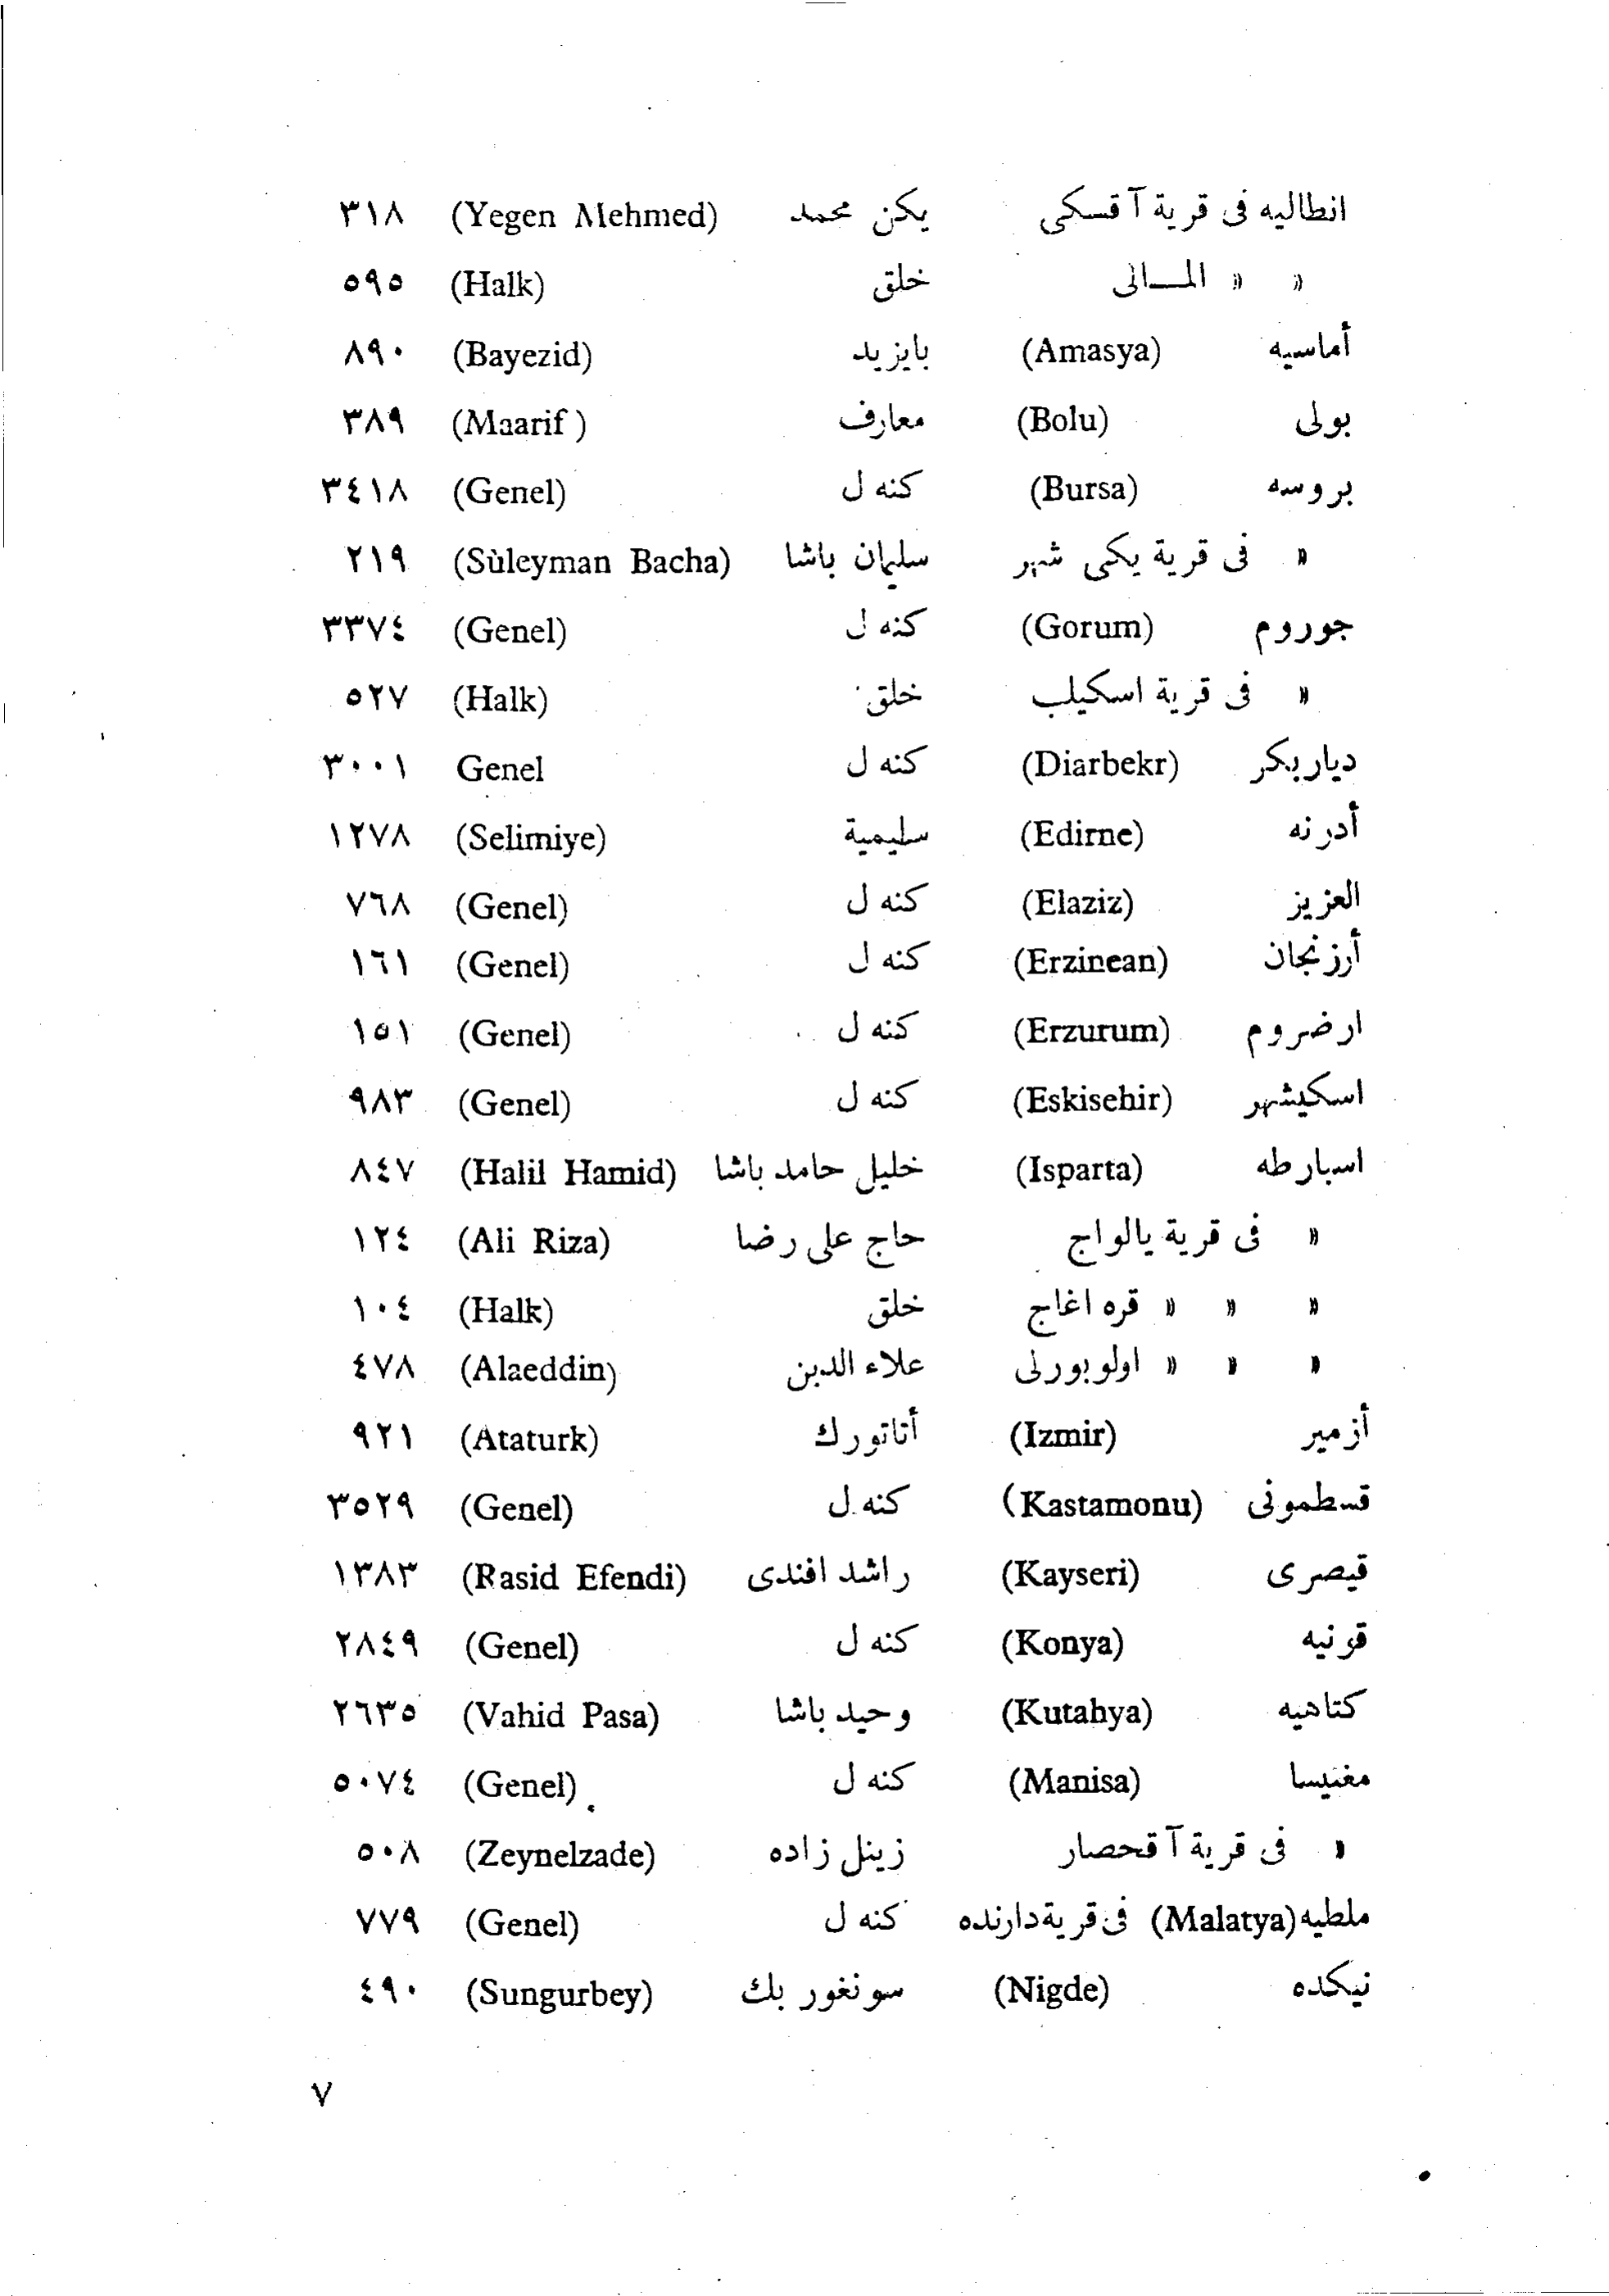 انطاليه فى قرية آقسكى يكن محمد (Yegen Mehmed) ٣١٨
« « المــالى خلق (Halk) ٥٩٥
أماسيه (Amasya) بايزيد (Bayezid) ٨٩٠
بولى (Bolu) معارف (Maarif) ٣٨٩
بروسه (Bursa) كنه ل (Genel) ٣٤١٨
« فى قرية يكى شهر سليمان باشا (Sùleyman Bacha) ٢١٩
جوروم (Gorum) كنه ل (Genel) ٣٣٧٤
« فى قرية اسكيلب خلق (Halk) ٥٢٧
دياربكر (Diarbekr) كنه ل Genel ٣٠٠١
أدرنه (Edirne) سليمية (Selimiye) ١٢٧٨
العزيز (Elaziz) كنه ل (Genel) ٧٦٨
أرزنجان (Erzinean) كنه ل (Genel) ١٦١
ارضروم (Erzurum) كنه ل (Genel) ١٥١
اسكيشهر (Eskisehir) كنه ل (Genel) ٩٨٣
اسبارطه (Isparta) خليل حامد باشا (Halil Hamid) ٨٤٧
« فى قرية يالواج حاج على رضا (Ali Riza) ١٢٤
« « « قره اغاج خلق (Halk) ١٠٤
« « « اولوبورلى علاء الدين (Alaeddin) ٤٧٨
أزمير (Izmir) أتاتورك (Ataturk) ٩٢١
قسطمونى (Kastamonu) كنه ل (Genel) ٣٥٢٩
قيصرى (Kayseri) راشد افندى (Rasid Efendi) ١٣٨٣
قونيه (Konya) كنه ل (Genel) ٢٨٤٩
كتاهيه (Kutahya) وحيد باشا (Vahid Pasa) ٢٦٣٥
مغنيسا (Manisa) كنه ل (Genel) ٥٠٧٤
« فى قرية آقحصار زينل زاده (Zeynelzade) ٥٠٨
ملطيه (Malatya) فى قرية دارنده كنه ل (Genel) ٧٧٩
نيكده (Nigde) سونغور بك (Sungurbey) ٤٩٠
٧